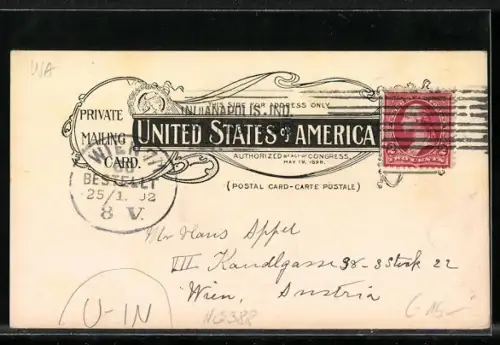 USA
INDIANAPOLIS, IND.
THIS SIDE FOR ADDRESS ONLY.
PRIVATE
MAILING
CARD.
UNITED STATES of AMERICA
AUTHORIZED BY ACT OF CONGRESS,
MAY 19, 1898.
(POSTAL CARD-CARTE POSTALE)
TWO CENTS
WIEN
BESTELLT
25/1. 02
8 V.
Mr Hans Appel
VII Kandlgasse 38-3 Stock 22
Wien, Austria
U-IN